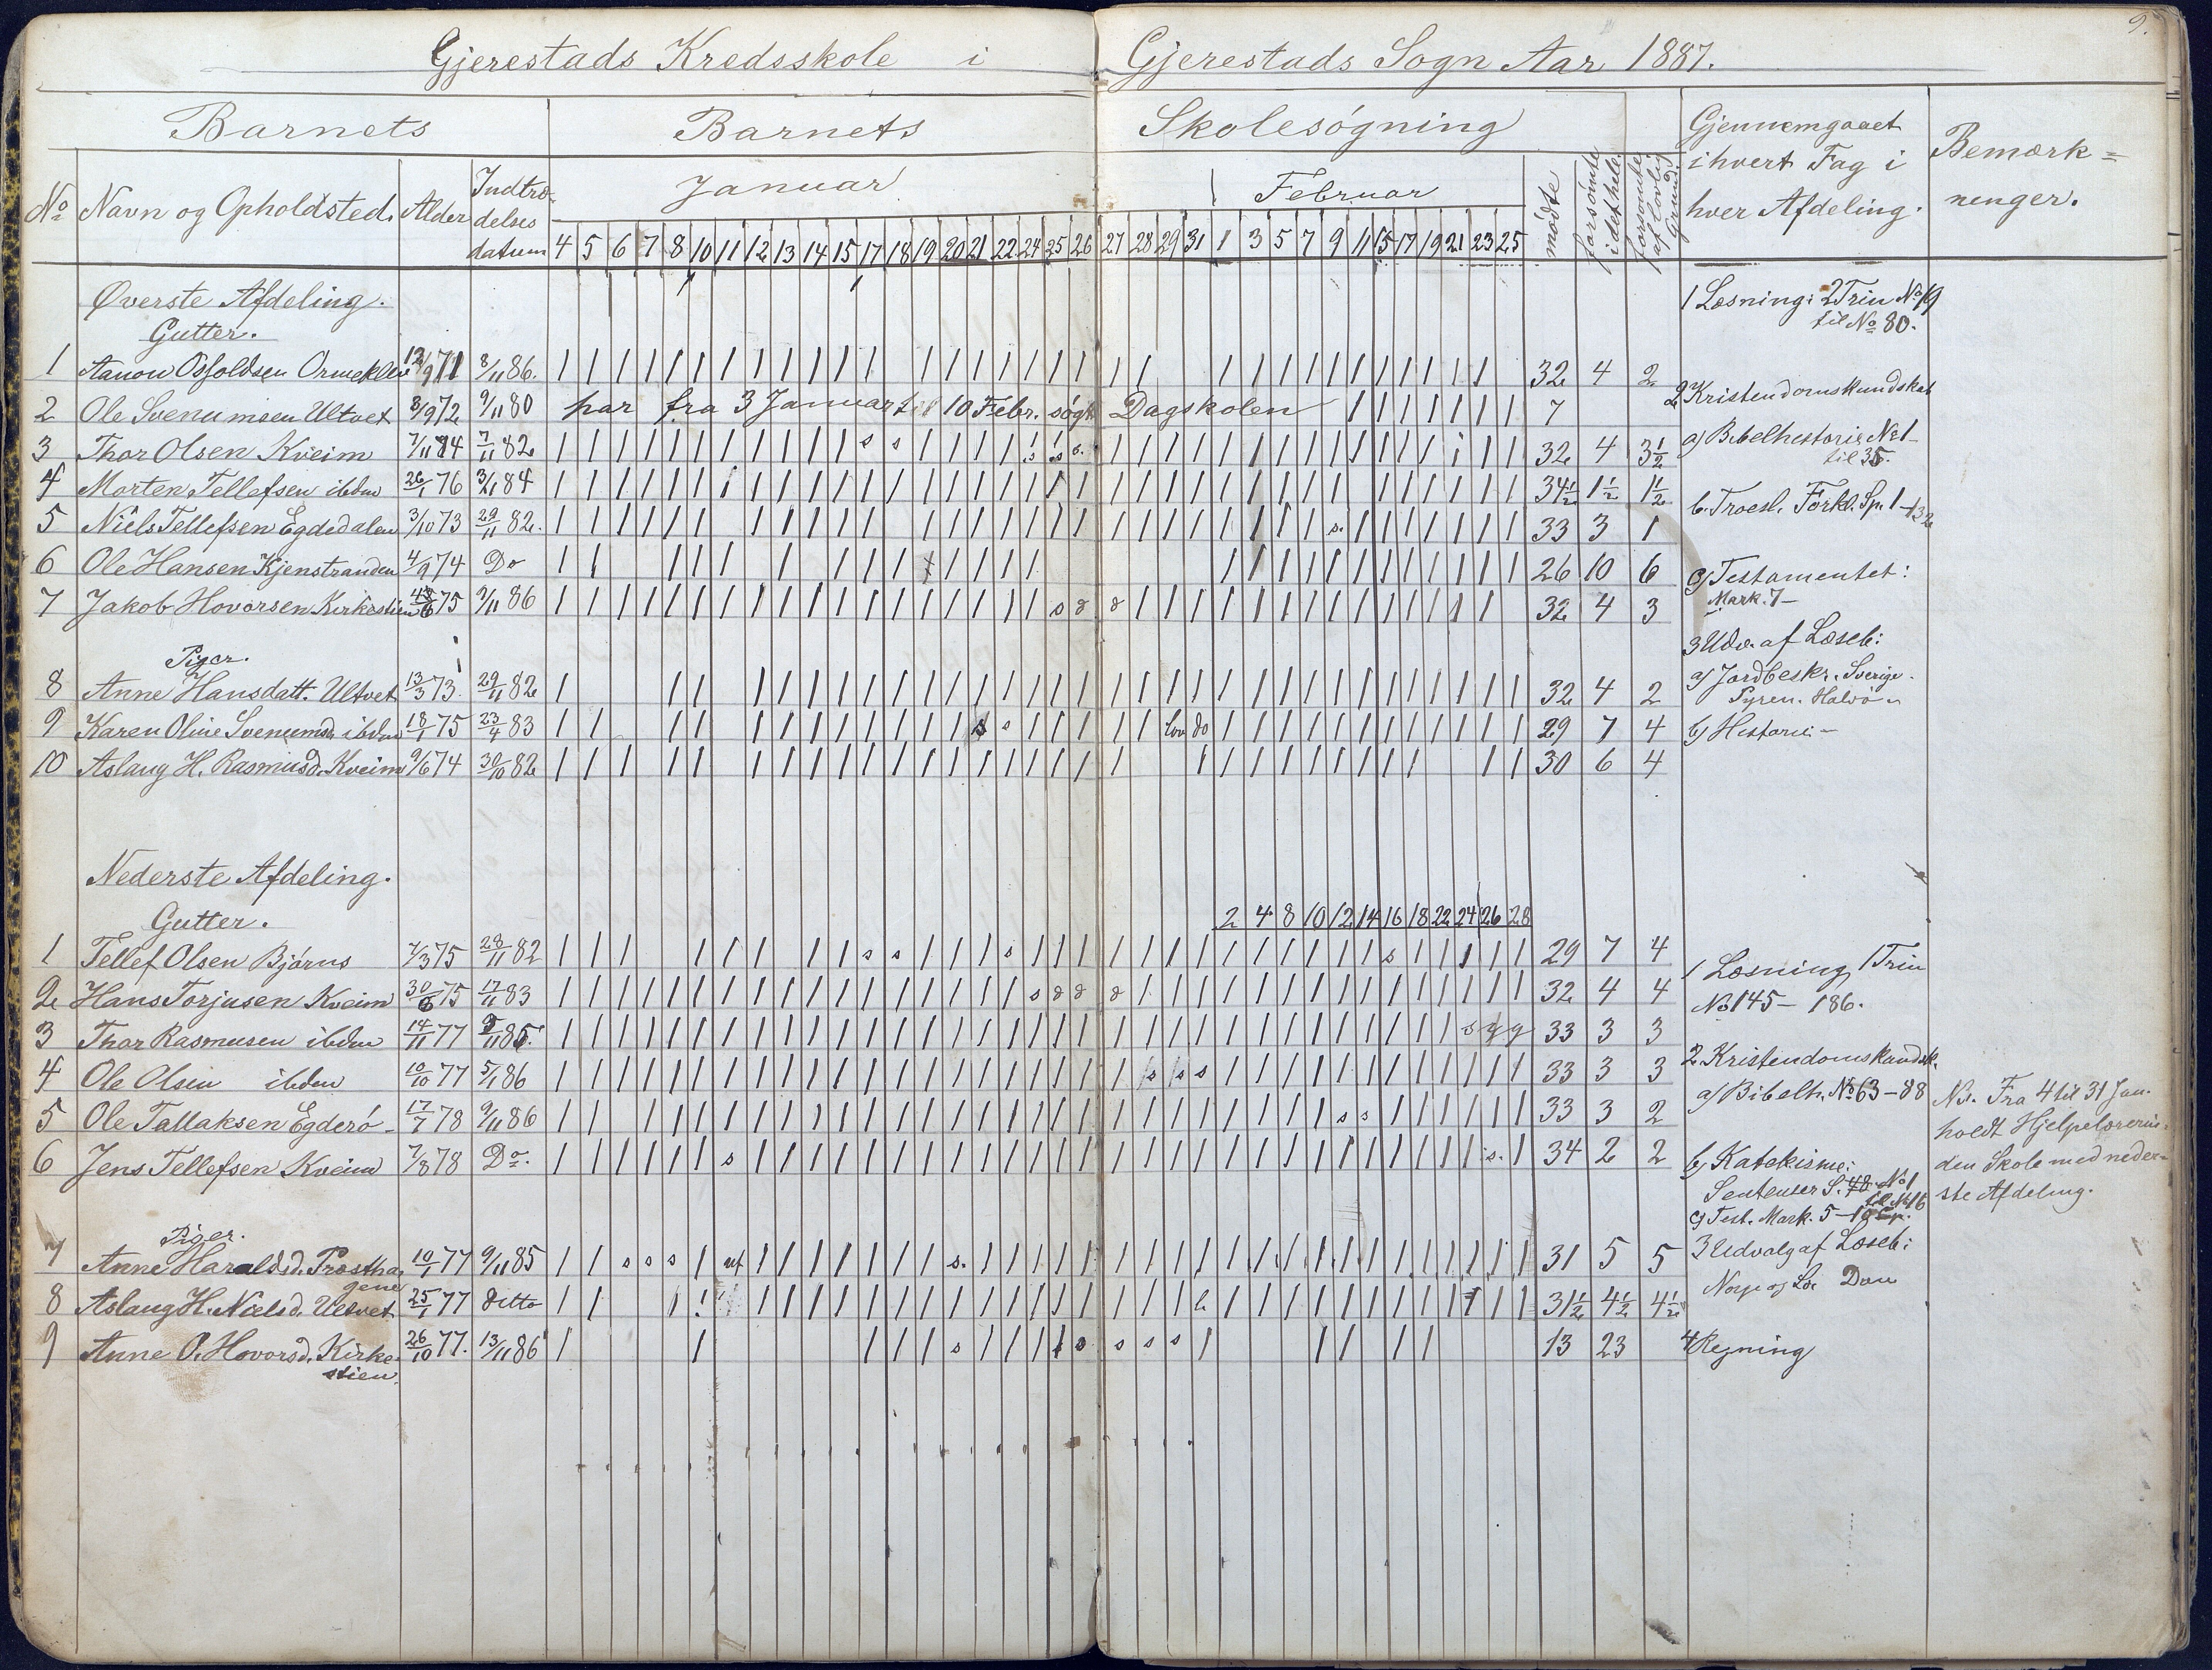 9.
Gjerestads Kredsskole i Gjerestads Sogn Aar 1887.
Barnets Barnets Skolesøgning
No Navn og Opholdsted. Alder Indtræ-
delses
datum
Januar Februar
mødte forsømte i det hele forsømte af lovlig Grund.
Gjennemgaaet
i hvert Fag i
hver Afdeling.
Bemærk=
ninger.
4 5 6 7 8 10 11 12 13 14 15 17 18 19 20 21 22 24 25 26 27 28 29 31 1 3 5 7 9 11 15 17 19 21 23 25
Øverste Afdeling.
Gutter.
1 Osfoldsen 8/11 86. 32 4 2
2 Ole Svenumsen Ultvet 3/9 72 9/11 80 har fra 3 Januar til 10 Febr. søgt Dagskolen 7
3 Thor Olsen Kveim 7/11 74 7/11 82 s s 32 4 3 1/2
4 Morten Tellefsen ibdm 26/1 76 84 34 1/2 1 1/2 1 1/2
5 Niels Tellefsen Egdedalen 3/10 73 29/11 82. s. 33 3 1
6 Ole Hansen Kjenstranden 4/9 74 Do 26 10 6
7 Jakob Hovorsen Kirkestien 75 9/11 86 s d d 32 4 3
Piger.
8 Anne Hansdatt. Ultvet 13/3 73. 29/11 82 32 4 2
9 Karen Oline Svenumsd. ibdm 18/1 75 23/4 83 s s lov do 29 7 4
10 Aslaug H. Rasmusd. Kveim 9/6 74 30/10 82 30 6 4
1 Læsning: 2 Trin No 19
til No 80.
2 Kristendomskundskab
a) Bibelhistorie No 1-
til 35.
b. Troesl. Forkl. Sp. 1-132
c) Testamentet:
Mark. 7-
3 Udv. af Læseb:
a) Jordbeskr. Sverige.
Pyren. Halvø
b) Historie-
Nederste Afdeling.
Gutter.
2 4 8 10 12 14 16 18 22 24 26 28
1 Tellef Olsen Bjørus 7/3 75 28/11 82 s s s s 29 7 4
2 Hans Torjusen Kveim 30/6 75 17/11 83 s d d d 32 4 4
3 Thor Rasmusen ibdm 14/11 77 85. s y g 33 3 3
4 Ole Olsen ibdem 10/10 77 5/1 86 s s s 33 3 3
5 Ole Tallaksen Egderø- 17/7 78 9/11 86 s s 33 3 2
6 Jens Tellefsen Kveim 7/8 78 Do. s s. 34 2 2
Piger.
7 Anne Haraldsd. Prostha-
gene 10/1 77 9/11 85 s s s s. 31 5 5
8 Aslaug H. Nielsd. Ultvet 25/1 77 ditto 31 1/2 4 1/2 4 1/2
9 Anne O. Hovorsd. Kirke-
stien. 26/10 77. 13/11 86 s s s s 13 23
1 Læsning 1 Trin
No 145- 186.
2 Kristendomskundsk.
a) Bibelh. No 63-88
b) Katekisme:
Sentenser S. 48. No 1
til No 16
c) Test. Mark. 5-
3 Udvalg af Læseb:
Norge og Dan
4 Regning
Fra 4 til 31 Jan.
holdt Hjelpelærerin-
den Skole med neder-
ste Afdeling.